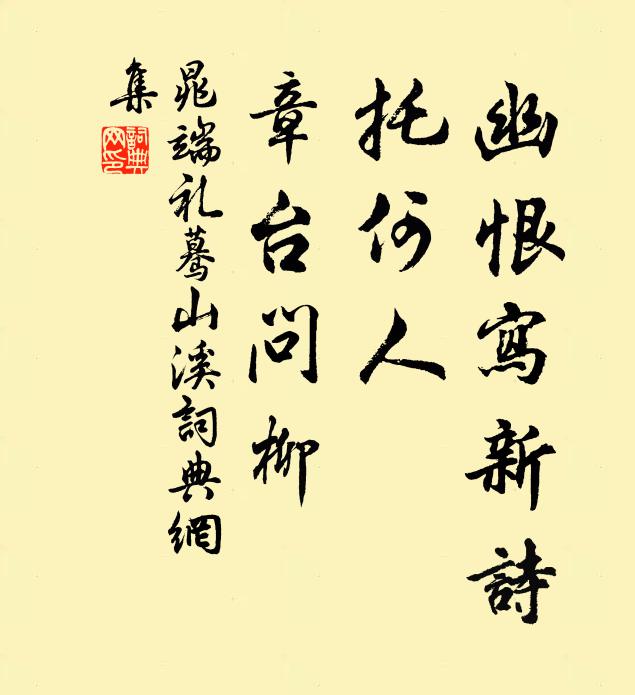 幽恨寫新詩
托何人
章台問柳
晁端礼蓦山溪詞典網
集
詞典网印